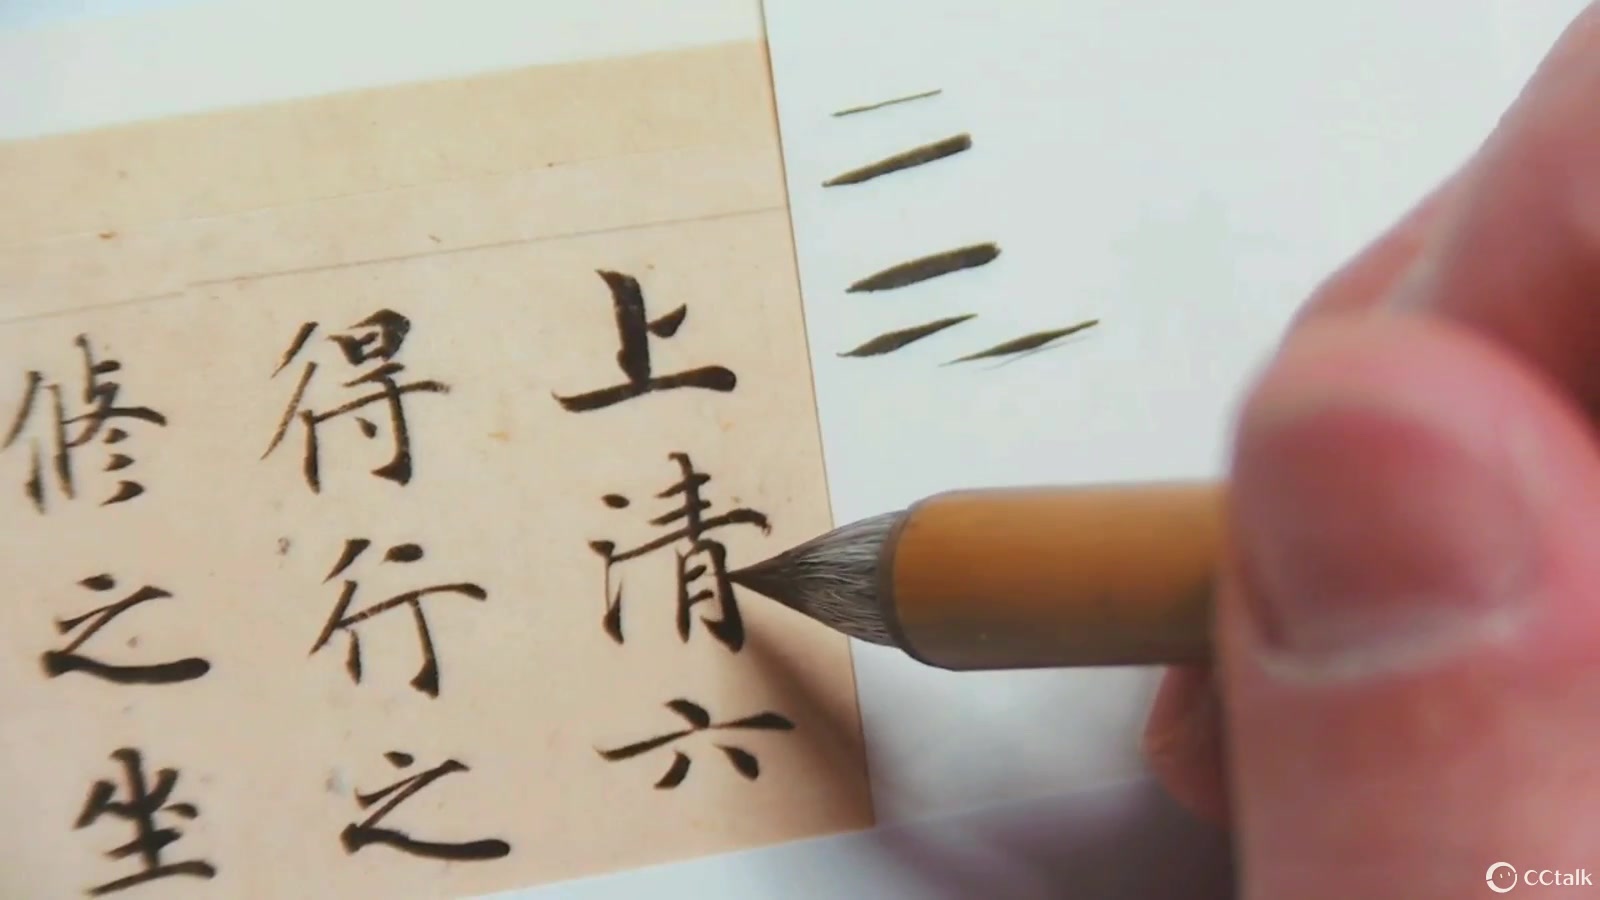 上清六
得行之
修之坐
CCtalk